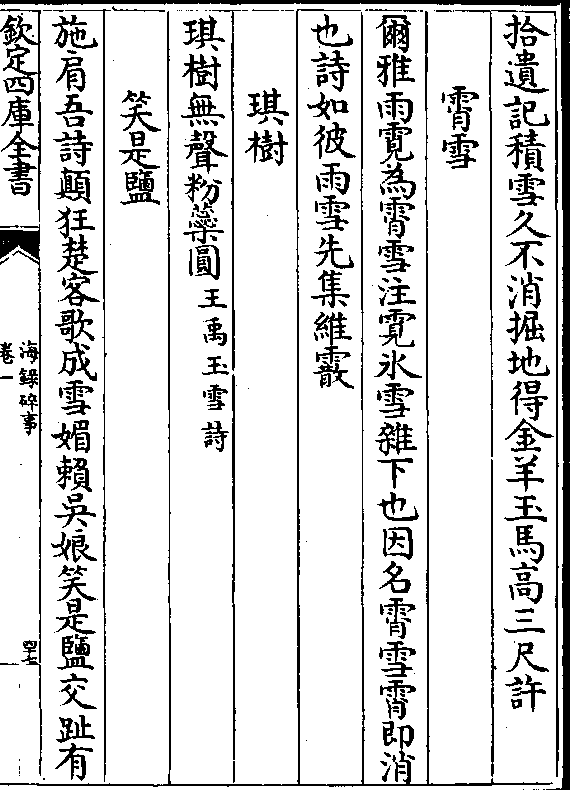 拾遺記積雪久不消掘地得金羊玉馬高三尺許
霄雪
爾雅雨霓為霄雪注霓氷雪雜下也因名霄雪霄即消
也詩如彼雨雪先集維霰
琪樹
琪樹無聲粉蘂圓王禹玉雪詩
笑是鹽
施肩吾詩顛狂楚客歌成雪媚賴吳娘笑是鹽交趾有
欽定四庫全書
海錄碎事
卷一
四十七